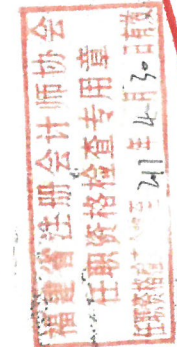 福建省注册会计师协会
任职资格检查专用章
任职资格 年 4 月 30 日